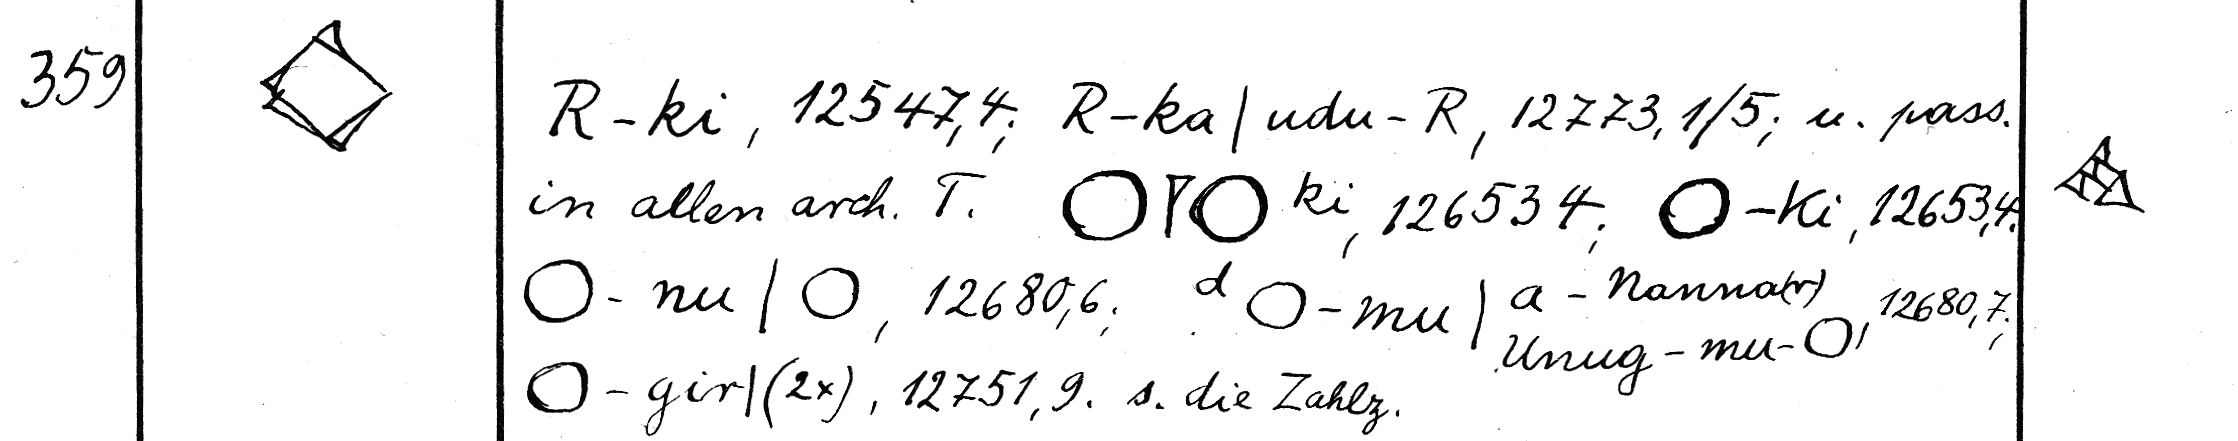 359
R-ki, 12547,4; R-ka | udu-R, 12773,1/5; u. pass.
in allen arch. T. O O ki, 12653 4; O-Ki, 12653,4;
O-nu | O, 12680,6; d O-mu | a-Nanna(r) Unug-mu-O, 12680,7;
O-gir | (2x), 12751,9. s. die Zahlz.